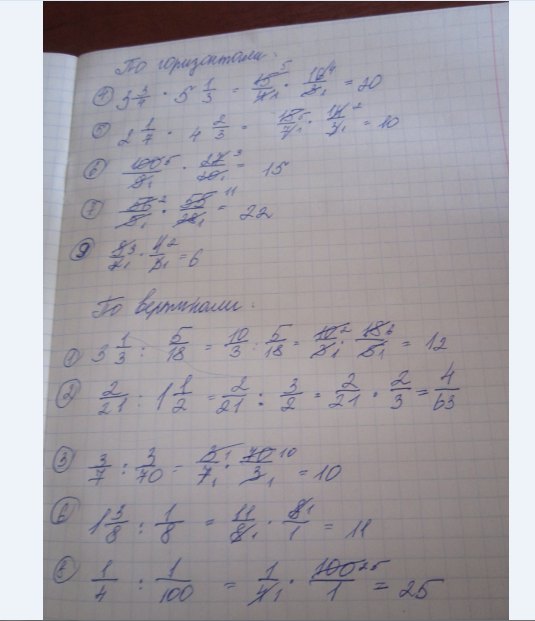 По горизонтали:
④ 3 3/4 · 5 1/3 = 15/4 · 16/3 = 20
⑤ 2 1/7 · 4 2/3 = 15/7 · 14/3 = 10
⑥ 100/9 · 27/20 = 15
⑦ · 55/ = 22
⑨ 9/2 · 4/3 = 6
По вертикали:
① 3 1/3 : 5/18 = 10/3 : 5/18 = 10/3 · 18/5 = 12
② 2/21 : 1 1/2 = 2/21 : 3/2 = 2/21 · 2/3 = 4/63
③ 3/7 : 3/70 = 3/7 · 70/3 = 10
⑥ 1 3/8 : 1/8 = 11/8 · 8/1 = 11
⑧ 1/4 : 1/100 = 1/4 · 100/1 = 25